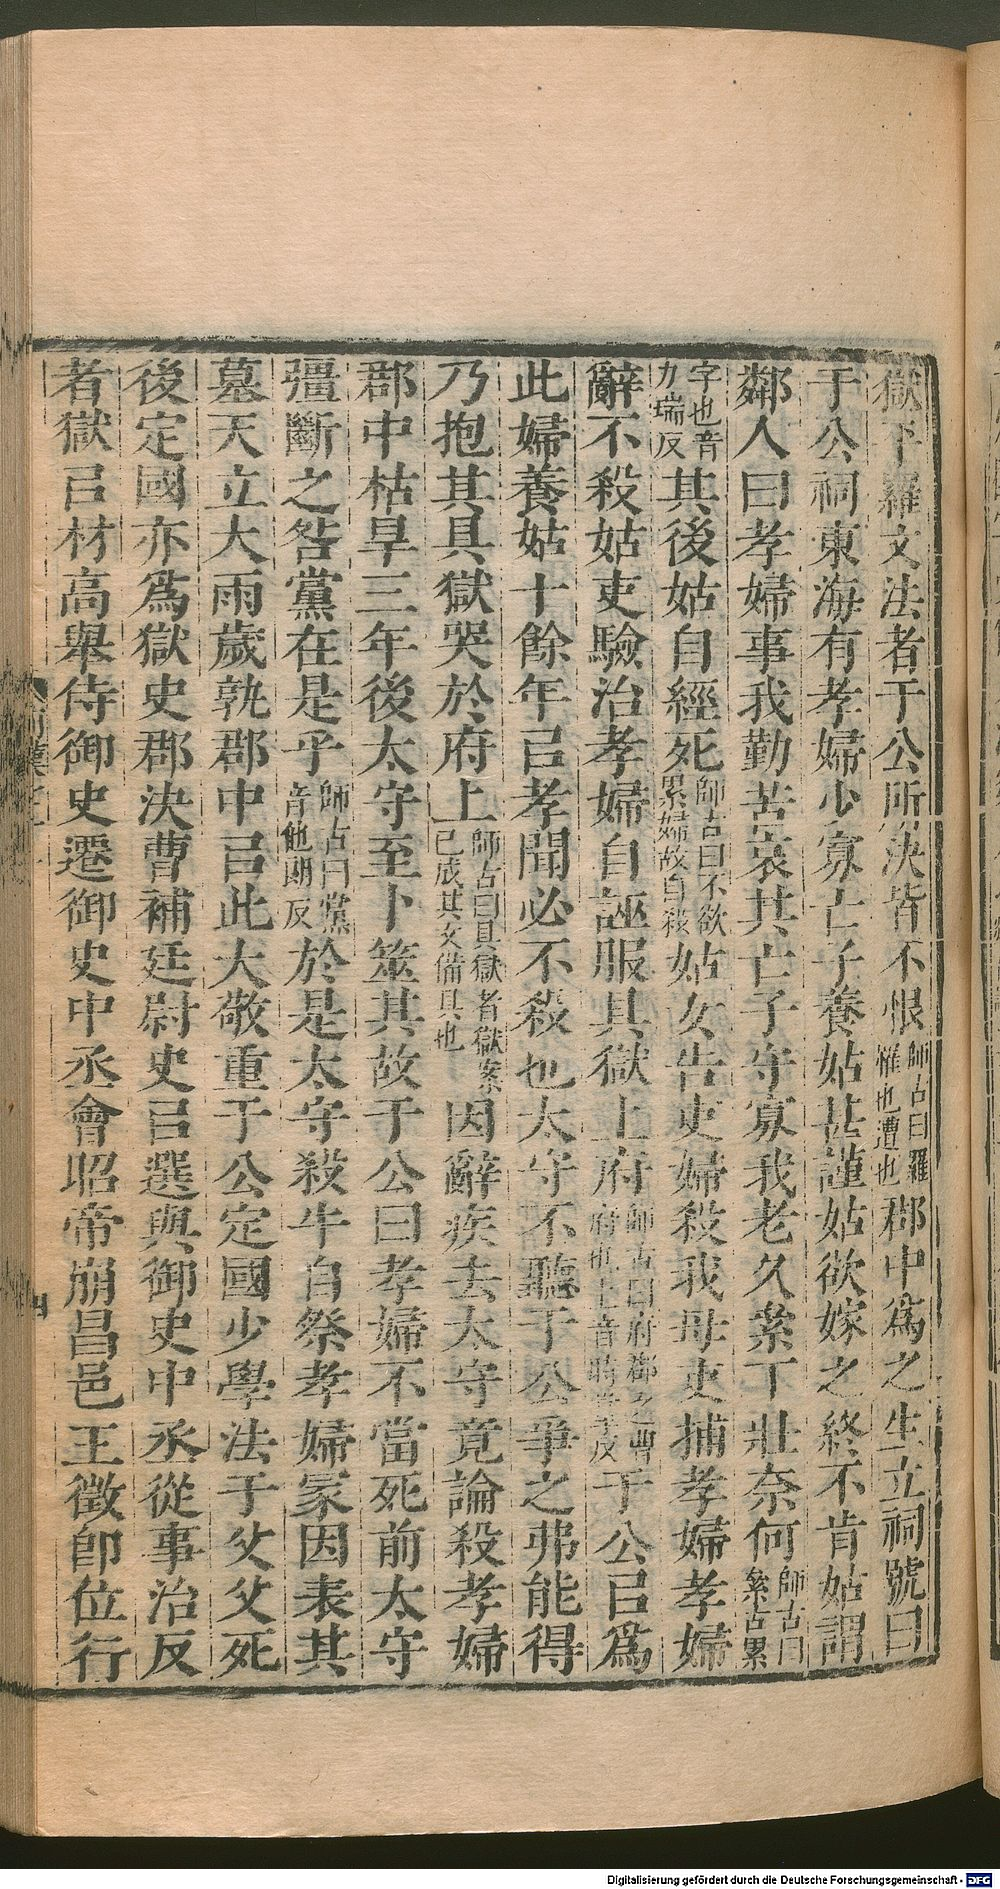 獄平羅文法者于公所決皆不恨師古曰羅罹也遭也郡中爲之生立祠號曰
于公祠東海有孝婦少寡亡子養姑甚謹姑欲嫁之終不肯姑謂
鄰人曰孝婦事我勤苦哀其亡子守寡我老久絫丁壯柰何師古曰絫古累
字也音力瑞反其後姑自經死師古曰不欲累婦故自殺姑女告吏婦殺我母吏捕孝婦孝婦
辭不殺姑吏驗治孝婦自誣服具獄上府師古曰府郡之曹府也上音時掌反于公㠯爲
此婦養姑十餘年㠯孝聞必不殺也太守不聽于公爭之弗能得
乃抱其具獄哭於府上師古曰具獄者獄案已成其文備具也因辭疾去太守竟論殺孝婦
郡中枯旱三年後太守至卜筮其故于公曰孝婦不當死前太守
彊斷之咎黨在是乎師古曰黨音他朗反於是太守殺牛自祭孝婦冢因表其
墓天立大雨歲孰郡中㠯此大敬重于公定國少學法于父父死
後定國亦爲獄史郡決曹補廷尉史㠯選與御史中丞從事治反
者獄㠯材高舉侍御史遷御史中丞會昭帝崩昌邑王徵卽位行
Digitalisierung gefördert durch die Deutsche Forschungsgemeinschaft - DFG